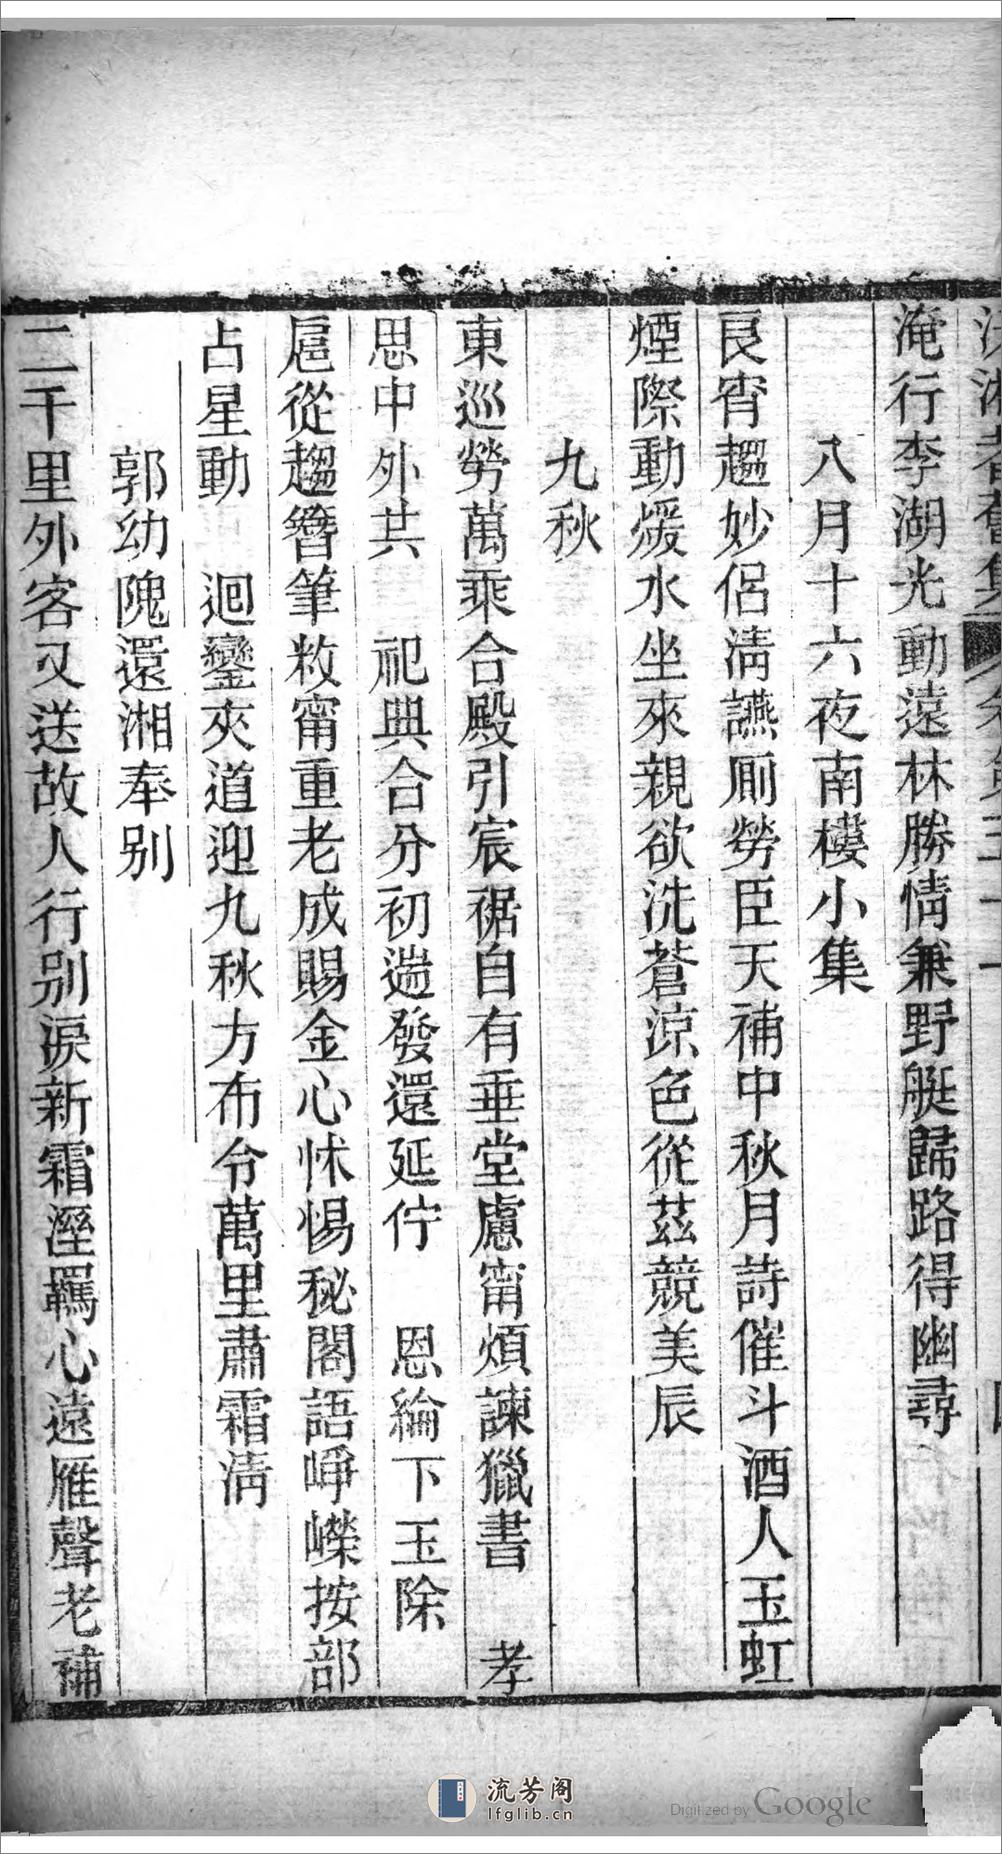 沅湘耆舊集 卷第三十一
淹行李湖光動遠林勝情兼野艇歸路得幽尋
八月十六夜南樓小集
良宵趨妙侶淸讌厠勞臣天補中秋月詩催斗酒人玉虹
煙際動煖水坐來親欲洗蒼涼色從茲競美辰
九秋
東巡勞萬乘合殿引宸裾自有垂堂慮甯煩諫獵書 孝
思中外共 祀典合分初遄發還延佇 恩綸下玉除
扈從趨簪筆敉甯重老成賜金心怵惕秘閣語崢嶸按部
占星動 迴鑾夾道迎九秋方布令萬里肅霜淸
郭幼隗還湘奉别
二千里外客又送故人行别淚新霜溼羈心遠雁聲老補
流芳阁
lfglib.cn
Digitized by Google